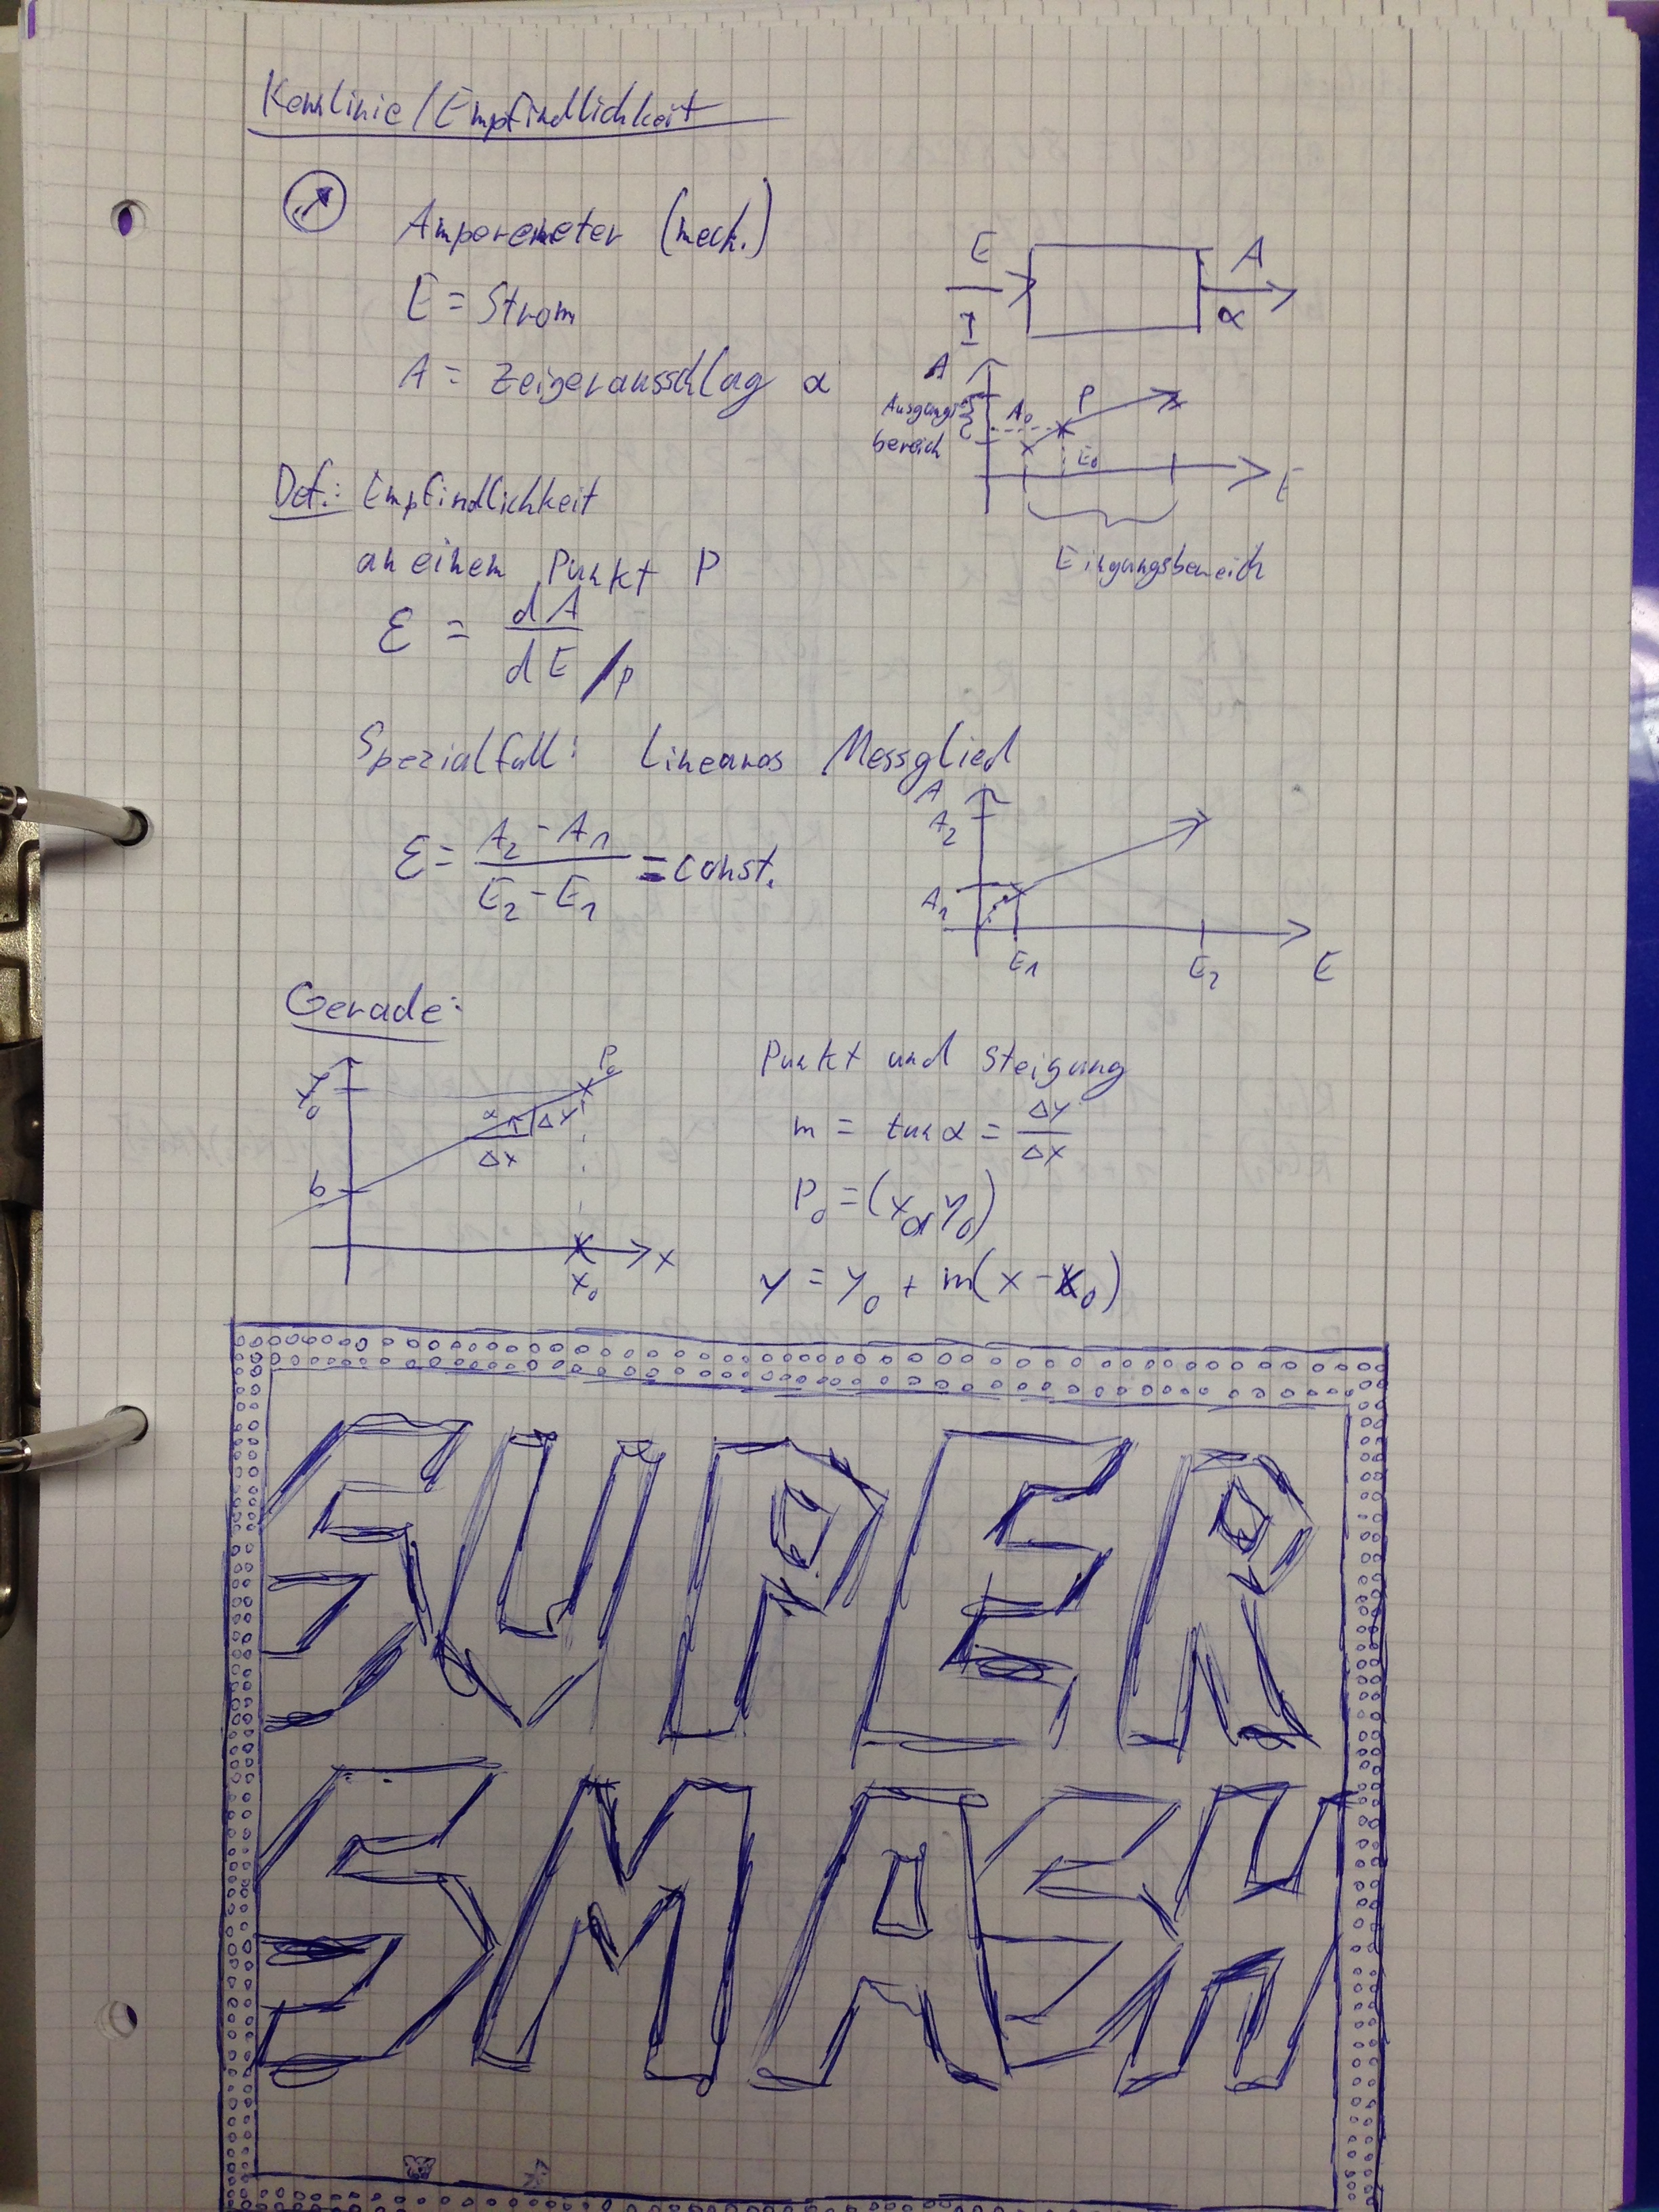 Kennlinie/Empfindlichkeit
Amperemeter (mech.)
E = Strom
A = Zeigerausschlag α
E
I
A
α
A
Ausgangs
bereich
A₀
P
E₀
E
Eingangsbereich
Def.: Empfindlichkeit
an einem Punkt P
ε = dA/dE /p
Spezialfall: Lineares Messglied
ε = (A₂ - A₁)/(E₂ - E₁) = const.
A
A₂
A₁
E₁
E₂
E
Gerade:
y₀
P₀
α
Δy
Δx
b
x
x₀
Punkt und Steigung
m = tan α = Δy/Δx
P₀ = (x₀, y₀)
y = y₀ + m(x - x₀)
SUPER